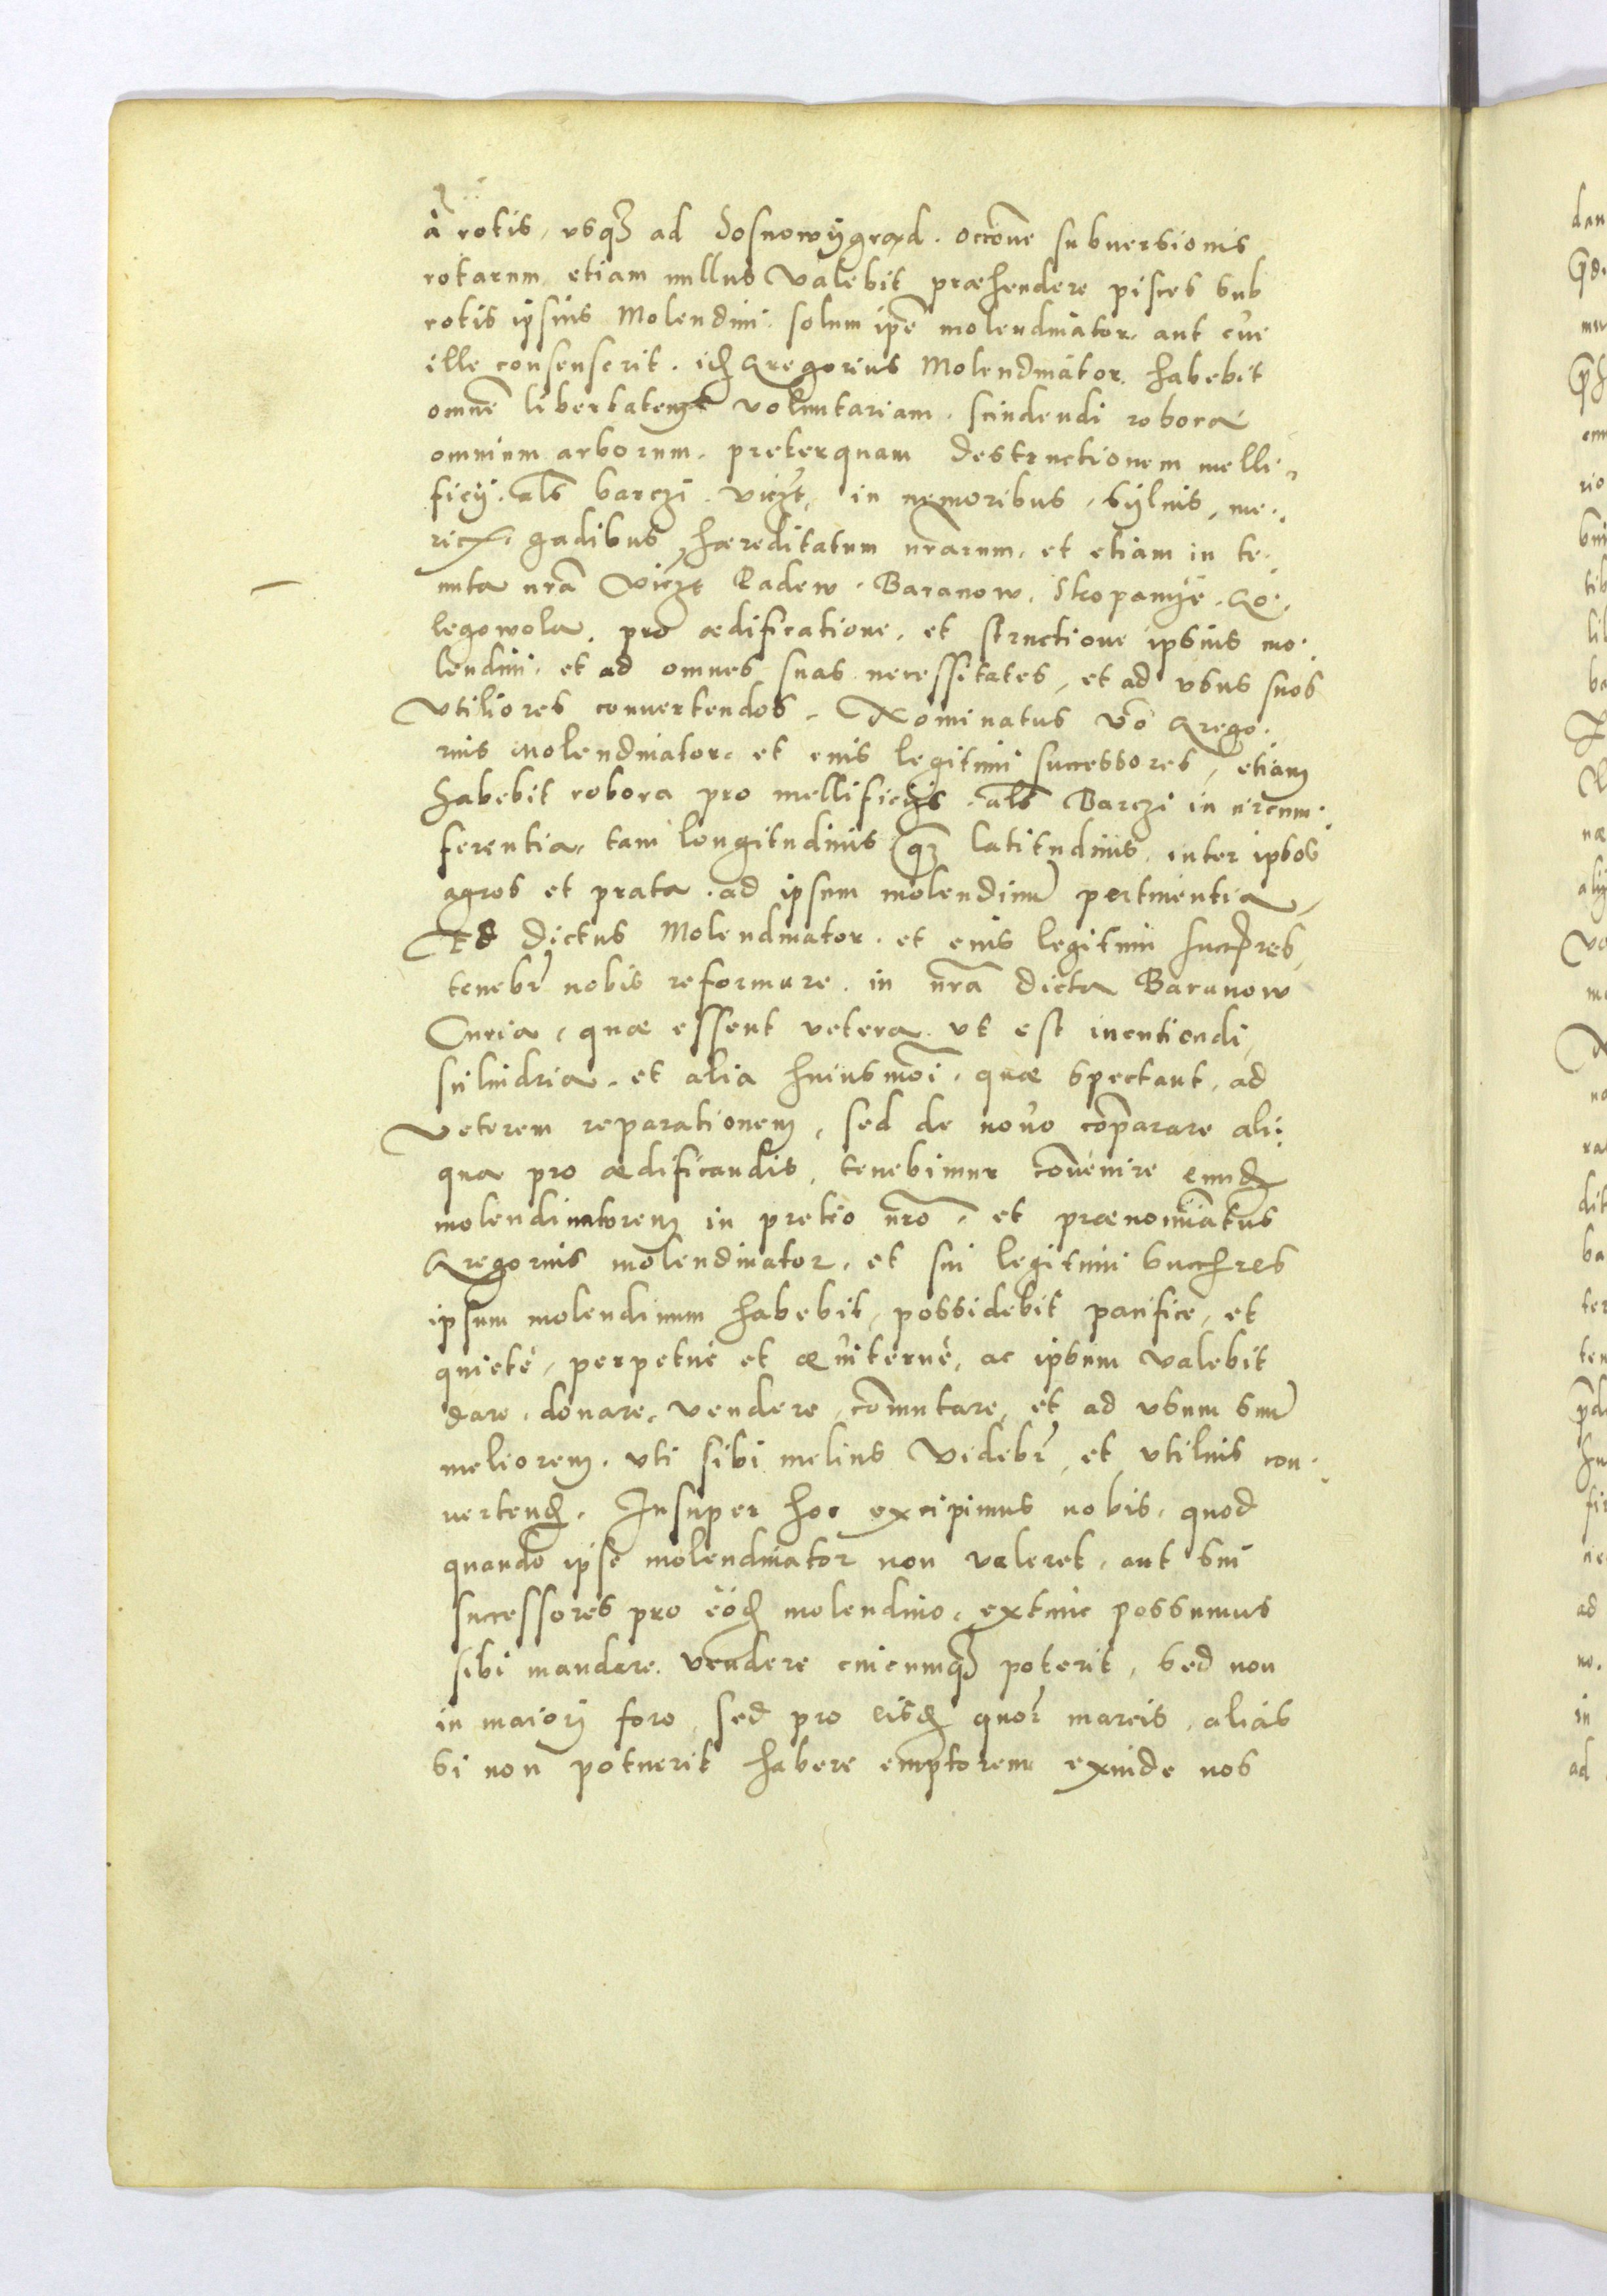 à rotis, usq3 ad Sosnowÿgrąd. occōne subuersionis
rotarum etiam nullus valebit præhendere pisces sub
rotis ipsius Molendini. solum ipē molendinator aut cūi
ille consenserit. idꝫ Gregorius Molendinator. habebit
omnē libertatem voluntariam. scindendi robora
omnium arborum. preterquam destructionem melli
ficij. als̄ barczi. viczt, in nemoribus, sÿluis, me.
ricis gadibus, hæreditatum nr̄arum. et etiam in te.
nuta nr̄a viczt Badew. Baranow. Skopaniје. Go.
legowola. pro ædificatione, et structione ipsius mo.
lendini. et ad omnes suas necessitates, et ad usus suos
vtiliores conuertendos. Nominatus vō Grego.
rius Molendinator. et eius legitimi successores, etiam
habebit robora pro mellificijs. als̄ Barczi in circum.
ferentia, tam longitudinis qꝫ latitudinis. inter ipsos
agros et prata. ad ipsum molendinū pertinentia,
Et dictus Molendinator. et eius legitimi succres,
tenebr̄ nobis reformare. in nr̄a dicta Baranow
Curia, quæ essent vetera. ut est incutiendi,
scilindria. et alia huiusmōi. quæ spectant, ad
veterem reparationem, sed de nouo cōparare ali:
qua pro ædificandis, tenebimur cōuenire eundꝫ
molendinatorem in pretio nr̄o. et prænomīatus
Gregorius molendinator. et sui legitimi succres
ipsum molendinum habebit, possidebit pacifice, et
quietè, perpetuè et æuiternè, ac ipsum valebit
dare. donare, vendere, cōmutare, et ad usum suū
meliorem. uti sibi melius videbr̄, et utilius con.
uertendꝫ. Insuper hoc excipimus nobis, quod
quando ipse molendinator non valeret. aut sui
successores pro eodꝫ molendino, extunc possumus
sibi mandare. vendere cuicumq3 poterit, sed non
in maiori foro, sed pro eisdꝫ quor̄ marcis, aliàs
si non potuerit habere emptorem exinde nos